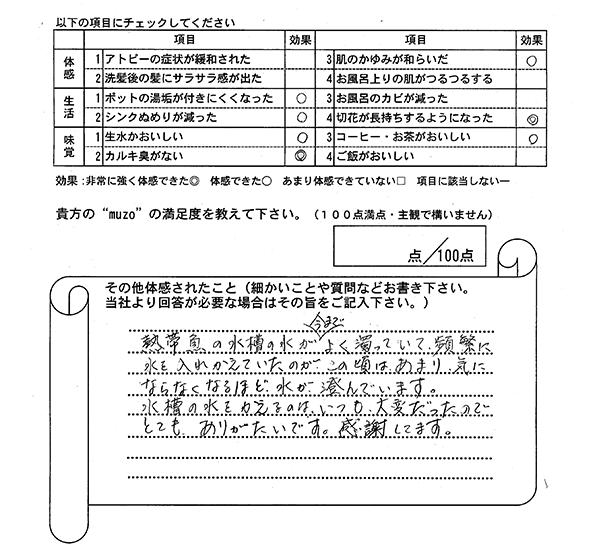 以下の項目にチェックしてください
項目 効果 項目 効果
体感 1 アトピーの症状が緩和された 3 肌のかゆみが和らいだ ○
2 洗髪後の髪にサラサラ感が出た 4 お風呂上りの肌がつるつるする
生活 1 ポットの湯垢が付きにくくなった ○ 3 お風呂のカビが減った
2 シンクぬめりが減った ○ 4 切花が長持ちするようになった ◎
味覚 1 生水がおいしい ○ 3 コーヒー・お茶がおいしい ○
2 カルキ臭がない ◎ 4 ご飯がおいしい
効果:非常に強く体感できた◎ 体感できた○ あまり体感できていない□ 項目に該当しないー
貴方の“muzo”の満足度を教えて下さい。(100点満点・主観で構いません)
点/100点
その他体感されたこと(細かいことや質問などお書き下さい。
当社より回答が必要な場合はその旨をご記入下さい。)
今まで
熱帯魚の水槽の水がよく濁っていて、頻繁に
水を入れかえていたのが、この頃は、あまり、気に
ならなくなるほど、水が、澄んでいます。
水槽の水をかえるのは、いつも、大変だったので
とても、ありがたいです。感謝してます。